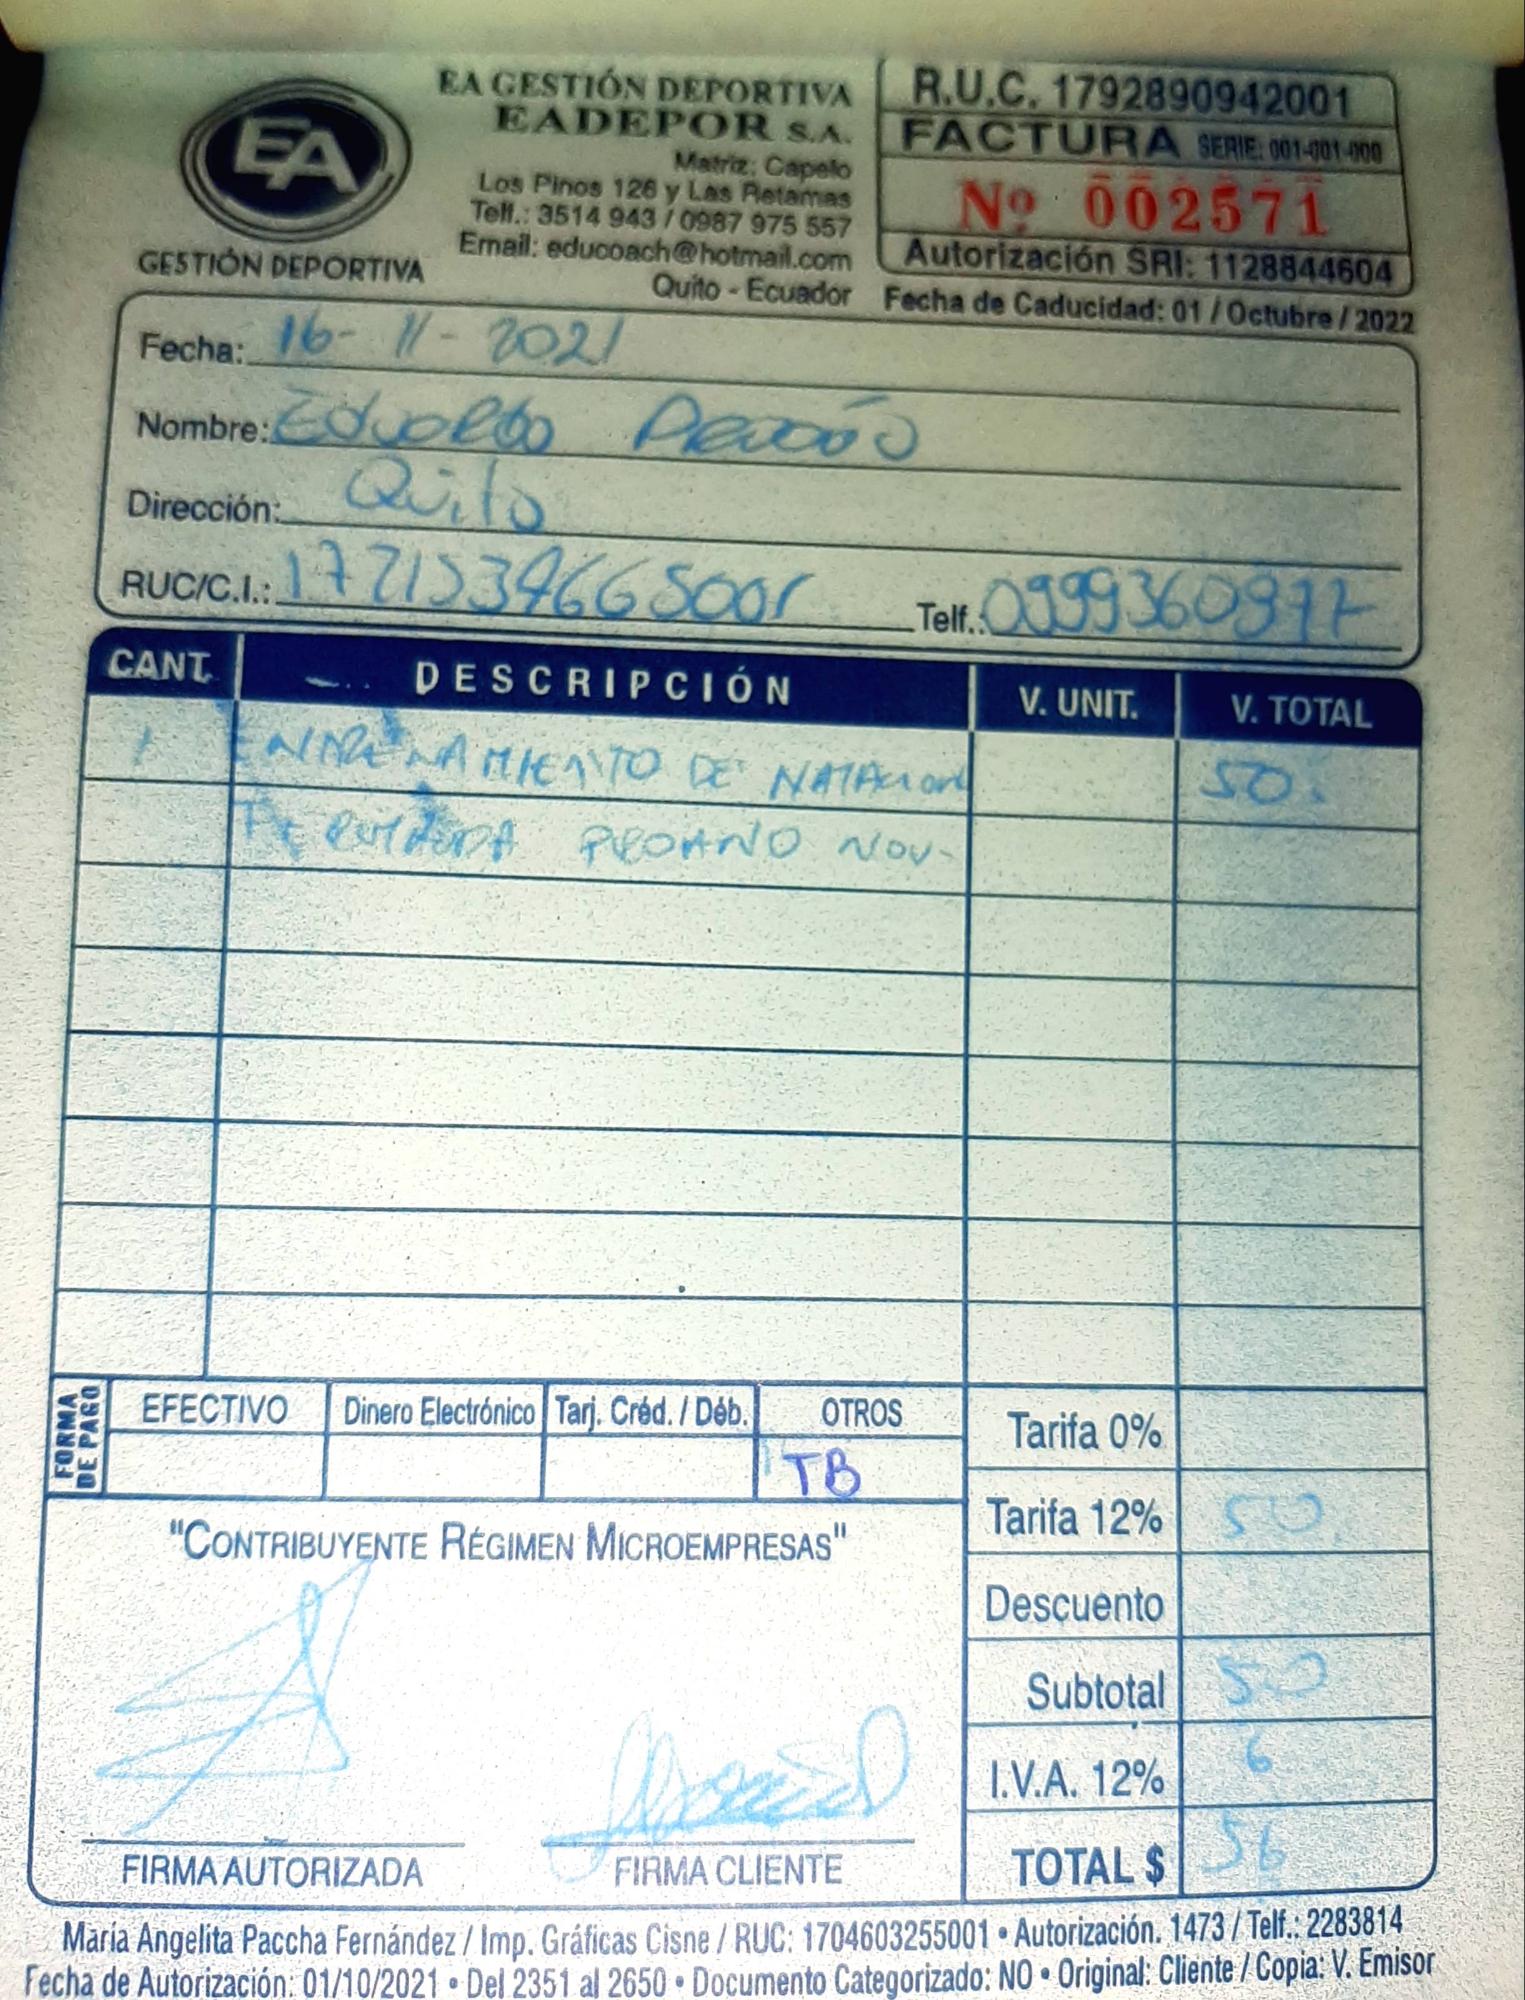 EA
GESTIÓN DEPORTIVA
EA GESTIÓN DEPORTIVA
EADEPOR S.A.
Matriz: Capelo
Los Pinos 126 y Las Retamas
Telf.: 3514 943 / 0987 975 557
Email: educoach@hotmail.com
Quito - Ecuador
R.U.C. 1792890942001
FACTURA SERIE: 001-001-000
Nº 002571
Autorización SRI: 1128844604
Fecha de Caducidad: 01 / Octubre / 2022
Fecha: 16-11-2021
Nombre: Eduardo
Dirección: Quito
RUC/C.I.: Telf.: 0999360977
CANT. DESCRIPCIÓN V. UNIT. V. TOTAL
1 ENTRENAMIENTO DE NATACION 50.
PROAÑO NOV-
FORMA DE PAGO
EFECTIVO Dinero Electrónico Tarj. Créd. / Déb. OTROS
TB
Tarifa 0%
Tarifa 12% 50
Descuento
Subtotal 50
I.V.A. 12% 6
TOTAL $ 56
"CONTRIBUYENTE RÉGIMEN MICROEMPRESAS"
FIRMA AUTORIZADA FIRMA CLIENTE
María Angelita Paccha Fernández / Imp. Gráficas Cisne / RUC: 1704603255001 • Autorización. 1473 / Telf.: 2283814
Fecha de Autorización: 01/10/2021 • Del 2351 al 2650 • Documento Categorizado: NO • Original: Cliente / Copia: V. Emisor